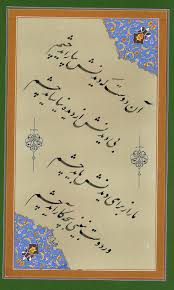 آن دوست که دیدنش بیاراید چشم
بی دیدنش از دیده نیاساید چشم
ما را ز برای دیدنش باید چشم
ور دوست نبیند بچه کار آید چشم